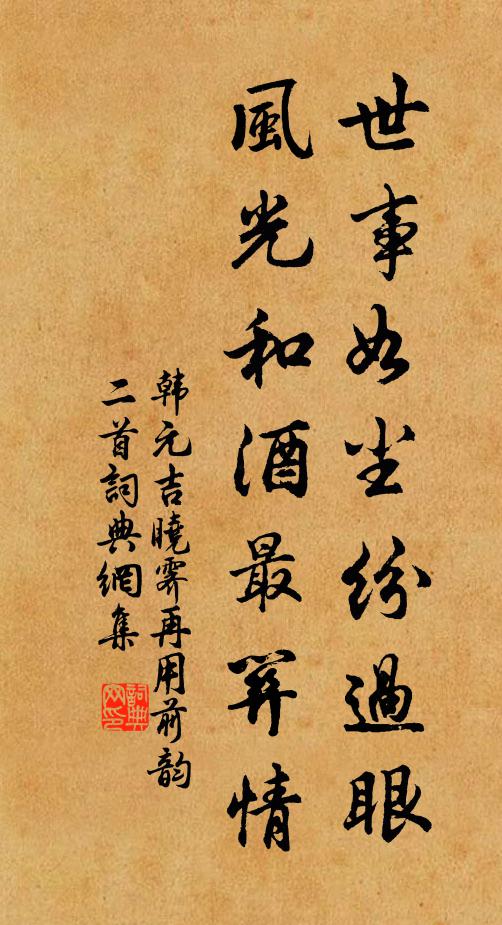 世事如尘紛過眼
風光和酒最關情
韩元吉曉霽再用前韵
二首詞典網集
詞典网印